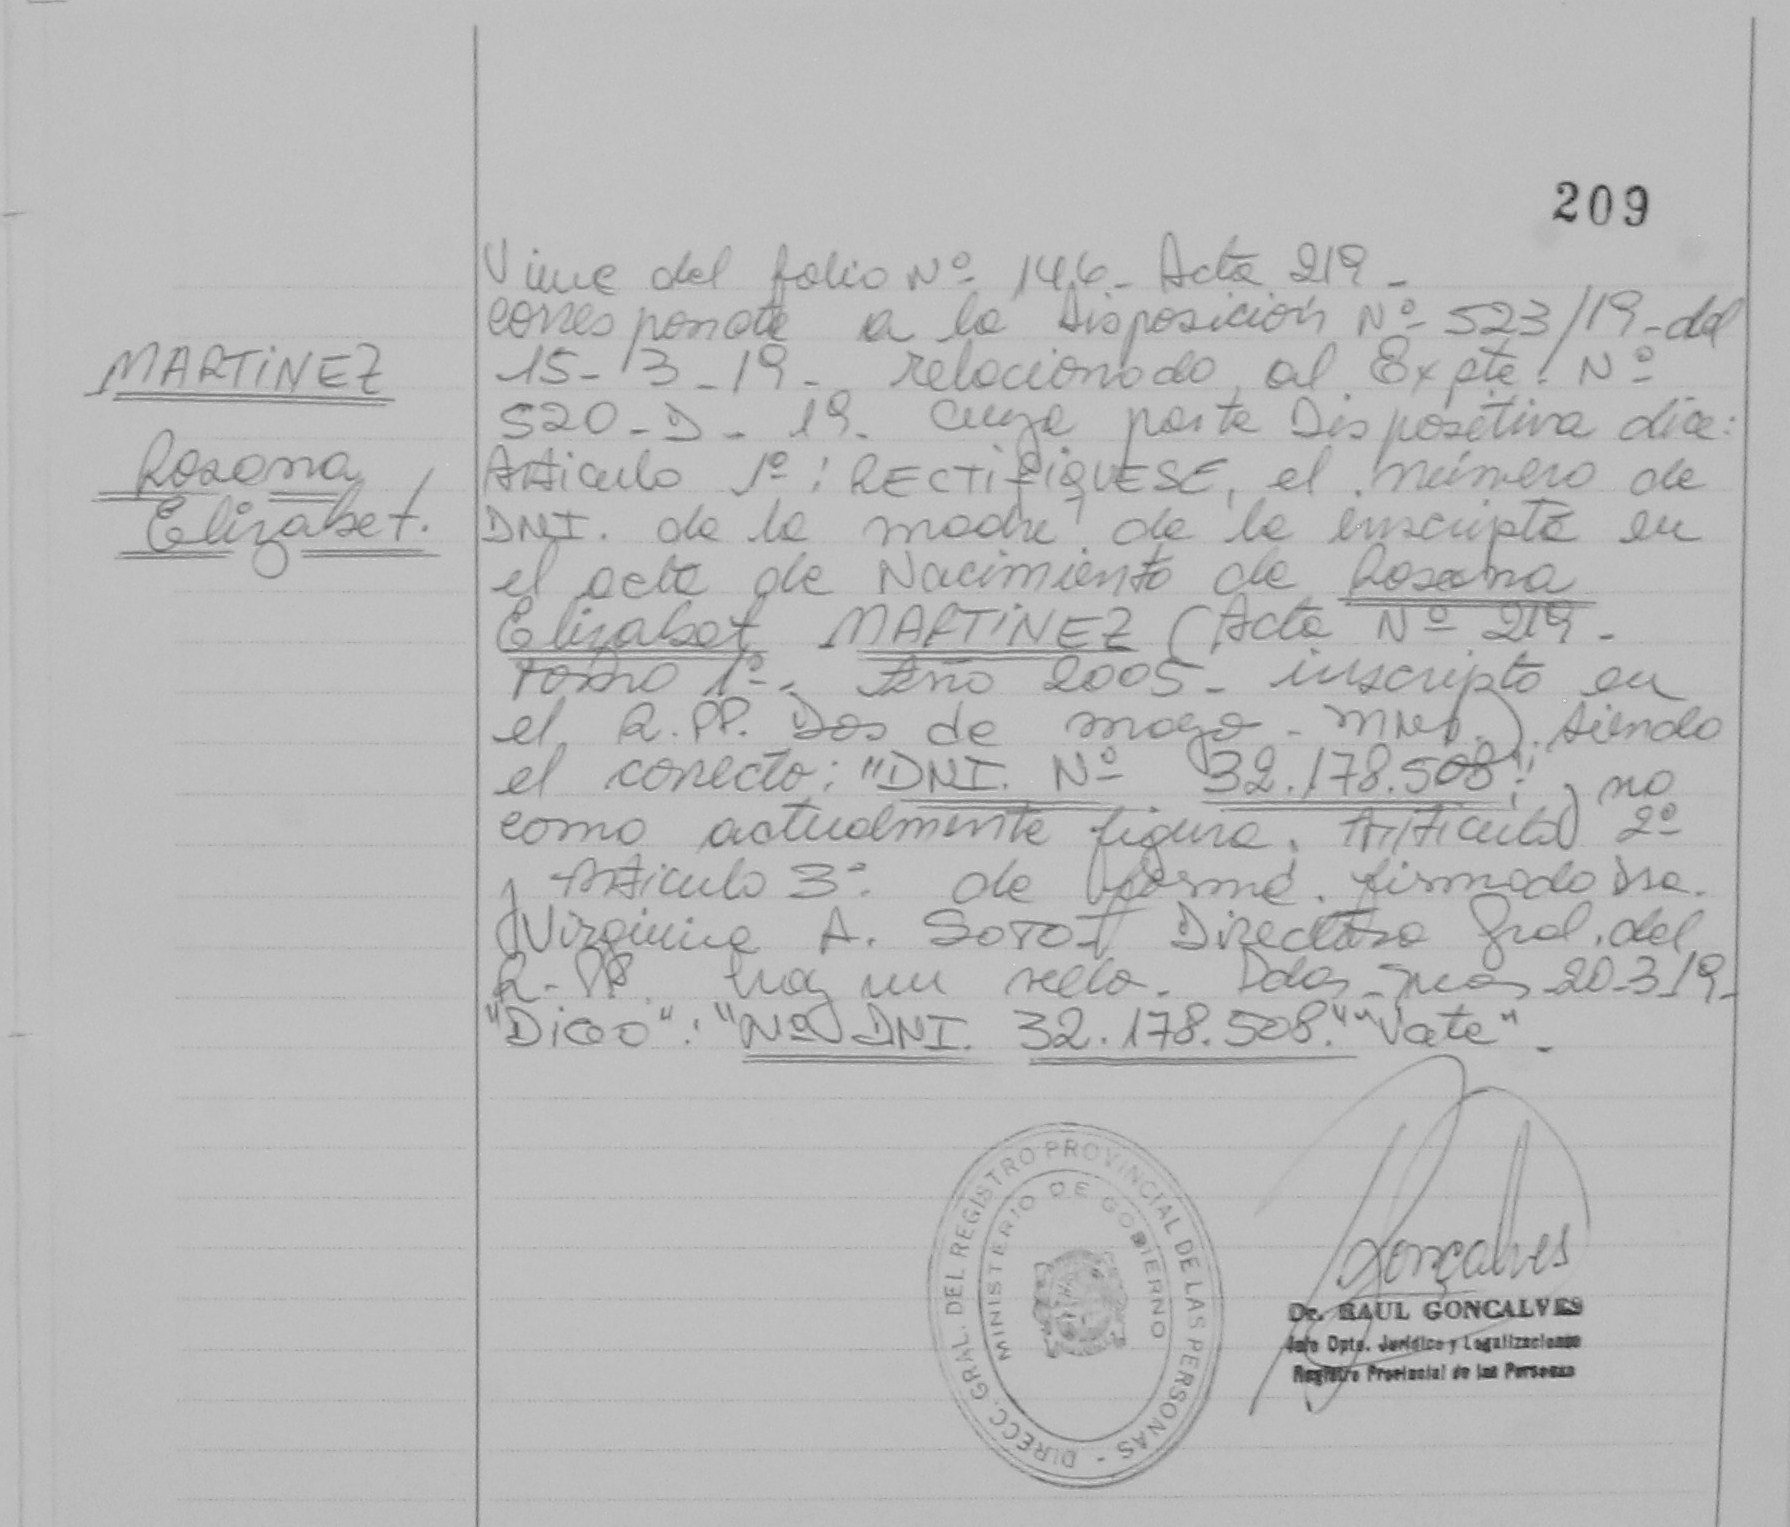 209
Viene del folio Nº 146- Acta 219-
corresponde a la Disposición Nº 523/19-del
15-3-19- relacionado al Expte. Nº
520-D-19- cuya parte Dispositiva dice:
Articulo 1º: RECTIFIQUESE, el número de
DNI. de la madre de la inscripta en
el acta de Nacimiento de Rosana
Elizabet MARTINEZ (Acta Nº 219-
tomo 1º- Año 2005- inscripto en
el R.PP. Dos de mayo - mnes.). siendo
el correcto: "DNI. Nº 32.178.508"; y no
como actualmente figura. Articulo 2º
y Articulo 3º. de forma. firmado Dra.
Virginia A. SOTO Directora Gral. del
R-PP. hay un sello. Pdas-Mnes 20-3-19-
"Digo": "Nº DNI. 32.178.508." "Vale".
MARTINEZ
Rosana
Elizabet.
DIRECC. GRAL. DEL REGISTRO PROVINCIAL DE LAS PERSONAS -
MINISTERIO DE GOBIERNO
Gonçalves
Dr. RAUL GONCALVES
Jefe Dpto. Jurídico y Legalizaciones
Registro Provincial de las Personas